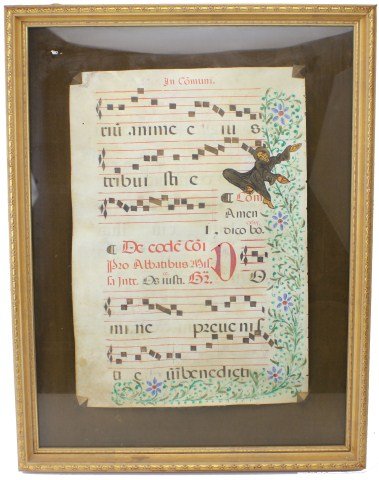 In Cõmuni.
riũ anime e ius
tribui sti e
¶ Com
Amen
I. dico bo.
¶ De eodẽ Cõi
Pro Abbatibus Mis
sa Intr. Os iusti. Gr.
D O
mine preuenis
ti e ũ benedicti